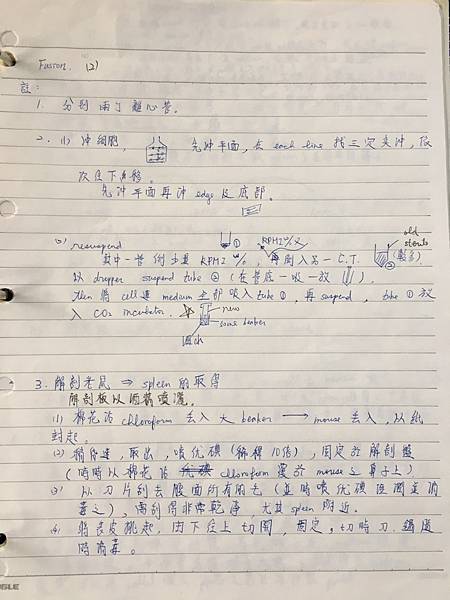 Fusion. (2)
註:
1. 分別兩丁離心管。
2. (1) 沖細胞, 先沖平面, 在 each line 找三定点沖, 依
次往下移。
先沖平面再沖 edge 及底部。
(2) resuspend
其中一管倒少量 RPMI w/o, 再倒入另一 C.T.
RPMI w/o 
old
sterile
以 dropper suspend tube ② (在管底一吸一放),
then 將 cell 連 medium 全部吸入 tube ①, 再 suspend, tube ① 放
入 CO2 incubator.
new
beaker
3. 解剖老鼠 ⇒ spleen 的取得
解剖板以酒精噴灑。
(1) 棉花沾 chloroform 丟入大 beaker → mouse 丟入, 以紙
封起。
(2) 取出, 噴優碘 (稀釋 10倍), 固定於解剖盤
(時時以棉花沾 chloroform 置於 mouse 之鼻子上)
(3) 以刀片刮去腹面所有的毛 (並時噴優碘
), 需刮得非常乾淨, 尤其 spleen 附近。
(4) 將表皮挑起, 由下往上切開, 固定。切時刀
時消毒。
GLE